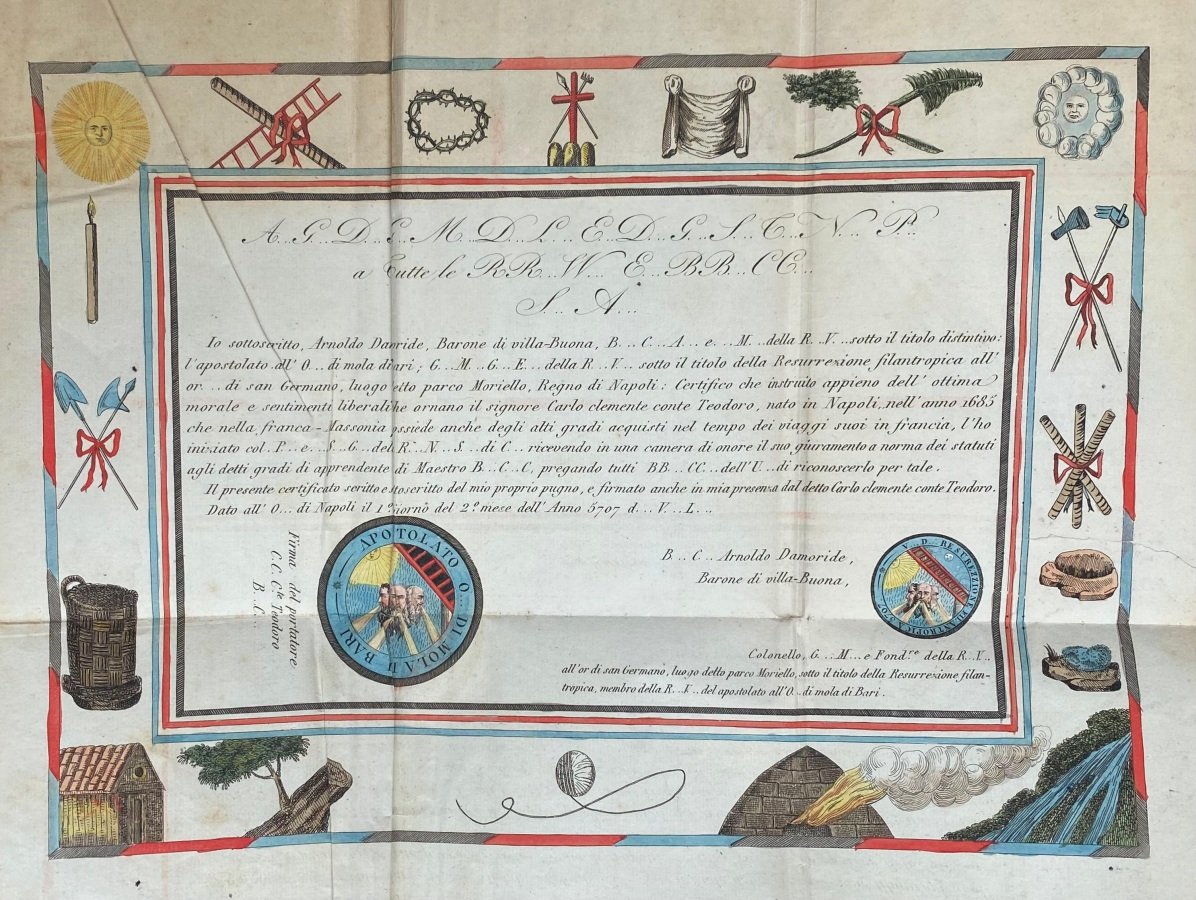 A...G...D...E...M...D...L...E...D...G...S...T...N...P...
a tutte le RR...W... E...BB...CC...
S... A...
Io sottoscritto, Arnoldo Damride, Barone di villa-Buona, B...C...A...e...M...della R...V...sotto il titolo distintivo:
l'apostolato all' O...di mola di ari; G...M...G...E...della R...V... sotto il titolo della Resurrezione filantropica all'
or...di san Germano, luogo etto parco Moriello, Regno di Napoli: Certifico che instruito appieno dell' ottima
morale e sentimenti liberali he ornano il signore Carlo clemente conte Teodoro, nato in Napoli, nell'anno 1685
che nella franca-Massonia ossiede anche degli alti gradi acquisti nel tempo dei viaggi suoi in francia, l'ho
iniziato col...P...e...S...G...del R...N...S...di C... ricevendo in una camera di onore il suo giuramento a norma dei statuti
agli detti gradi di apprendente di Maestro B...C...C, pregando tutti BB...CC...dell'U...di riconoscerlo per tale.
Il presente certificato scritto e stoscritto del mio proprio pugno, e firmato anche in mia presenza dal detto Carlo clemente conte Teodoro.
Dato all' O...di Napoli il 1º giorno del 2º mese dell'Anno 5707 d...V...L...
Firma del portatore
C.C. C.te Teodoro
B...C...
APOTOLATO O...DI MOLA D BARI
B...C...Arnoldo Damoride,
Barone di villa-Buona,
V...D...RESUREZIONE FILANTROPICA 5707
Colonello, G...M...e Fond.re della R...V...
all'or di san Germano, luogo detto parco Moriello, sotto il titolo della Resurrezione filan-
tropica, membro della R...V...del apostolato all'O...di mola di Bari.